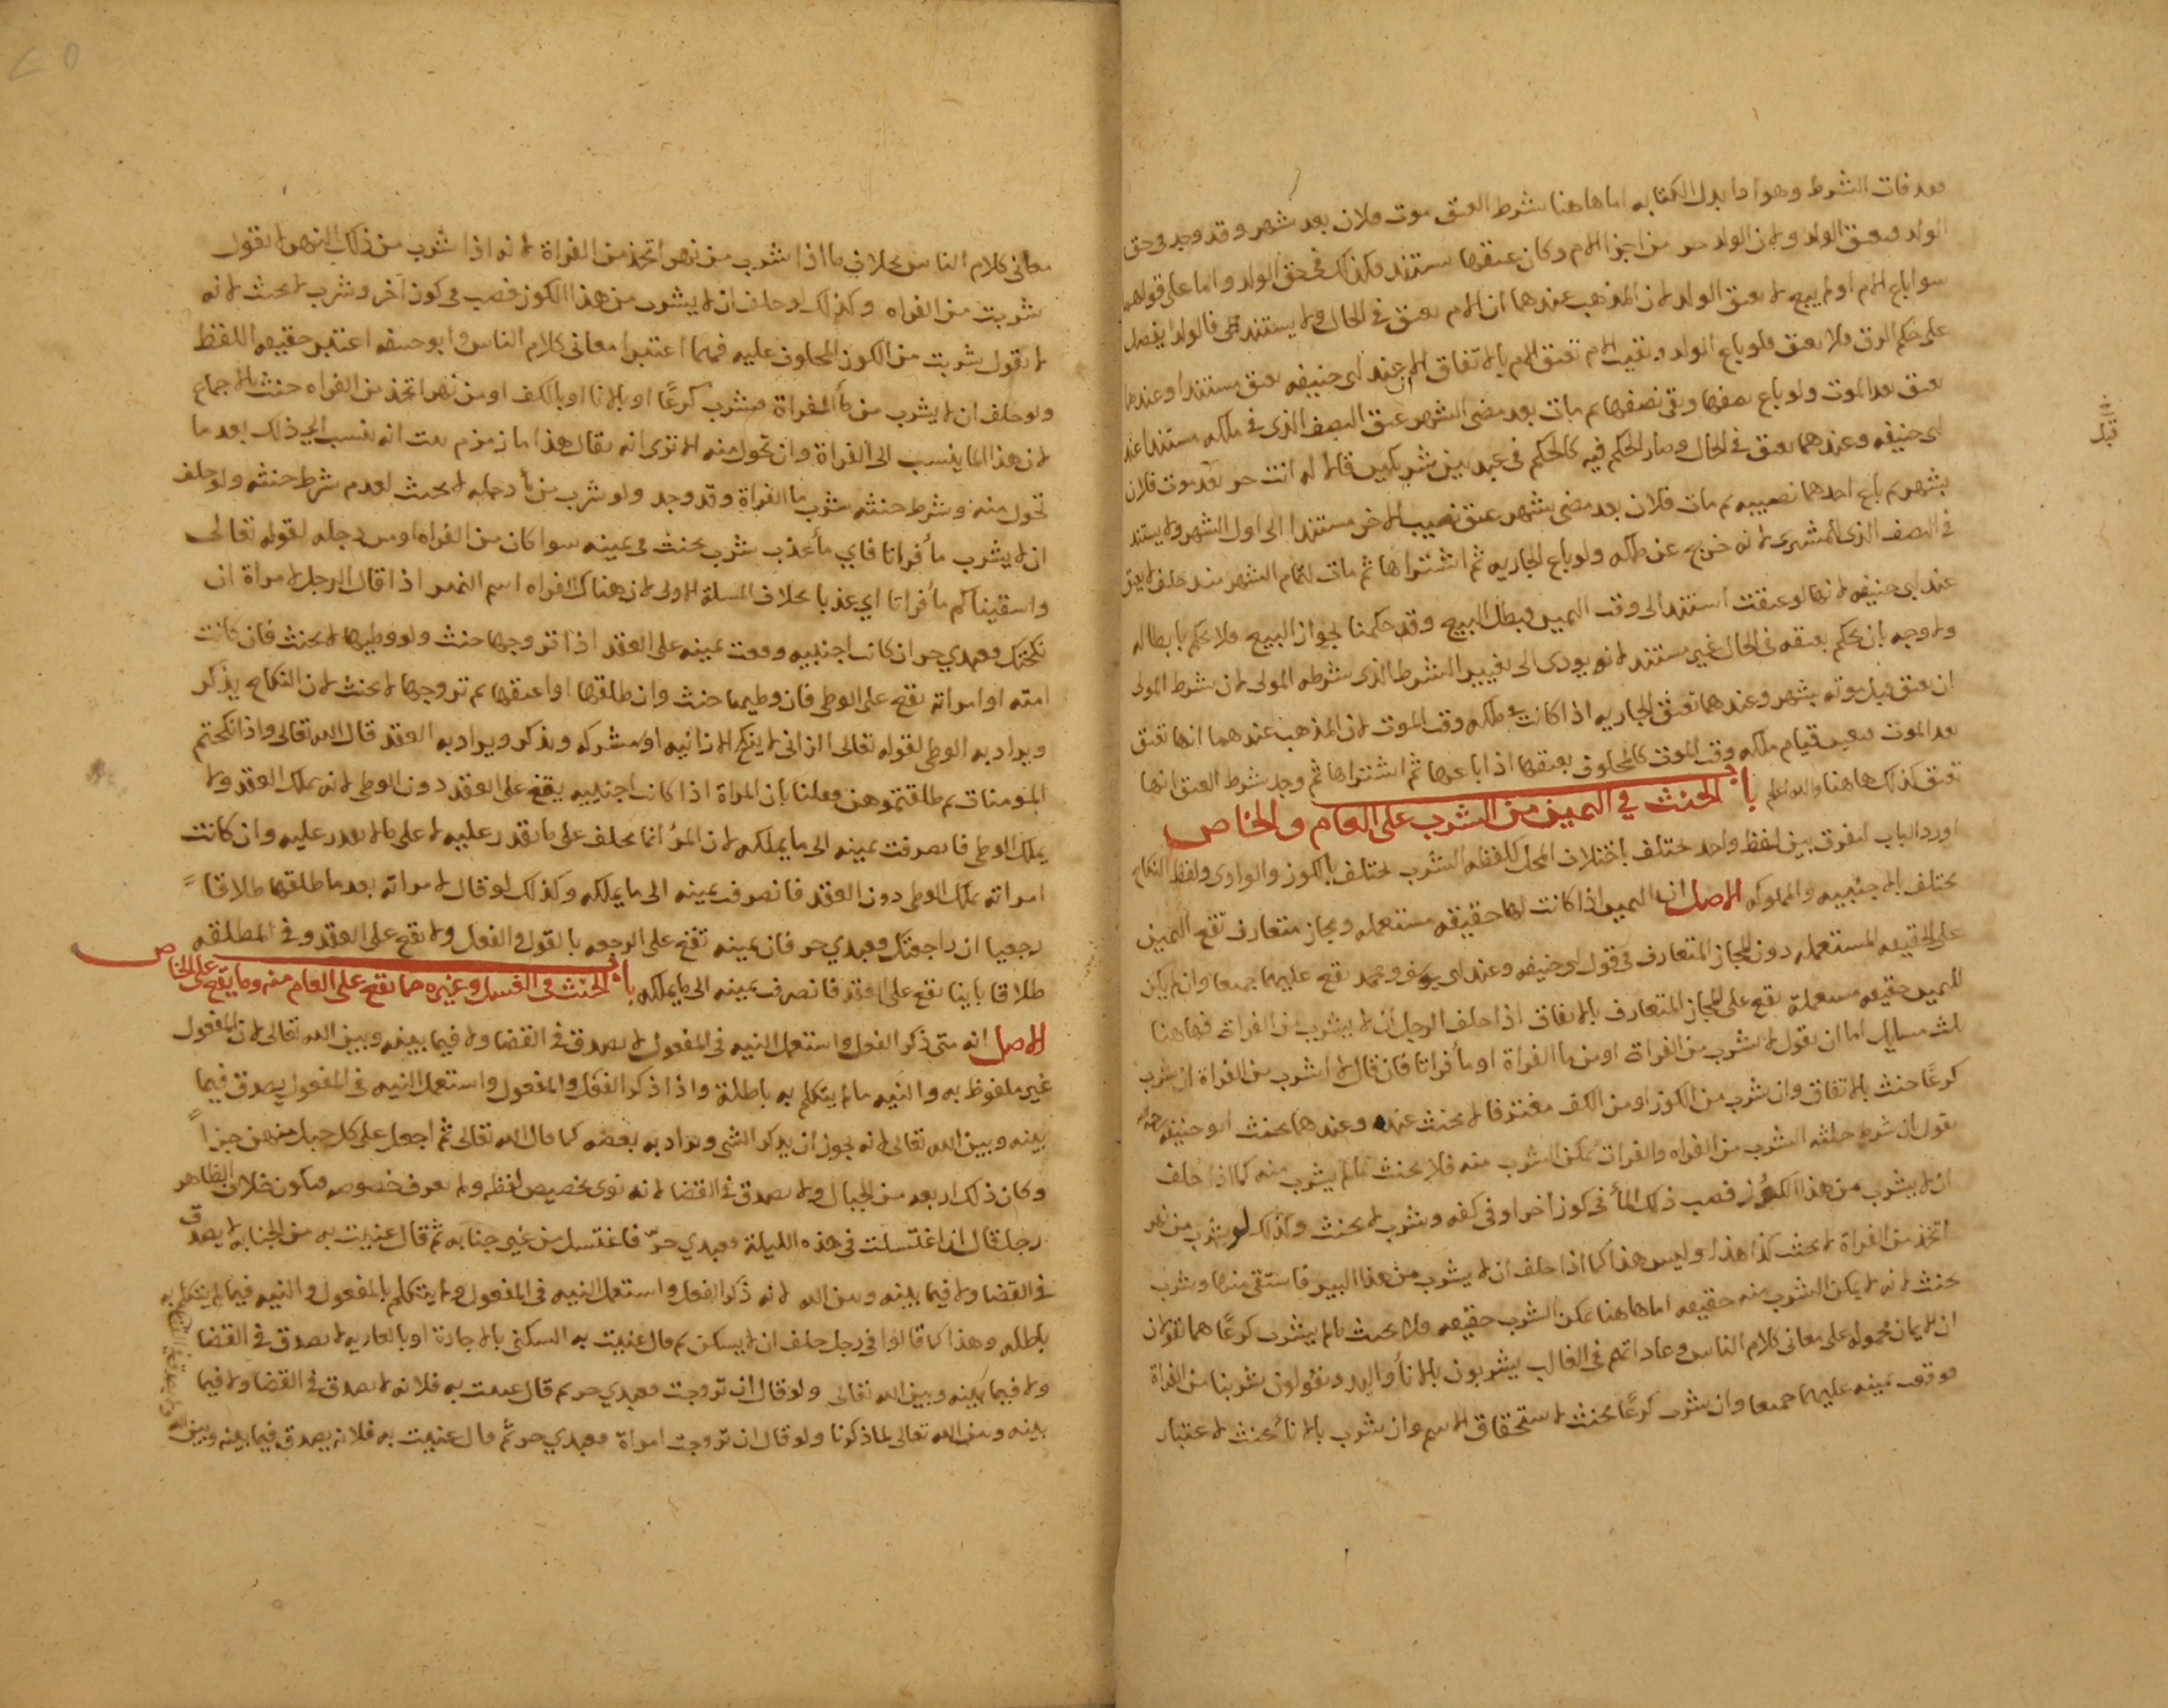 فقد فات الشرط وهو اداء بدل الكتابه اما هاهنا شرط العتق موت فلان بعد شهر وقد وجد في حق
الولد فيعتق الولد ولان الولد جزء من اجزا الام وكان عتقها مستند فكذلك في حق الولد واما على قولهما
سوا باع الام او لم يبيع لا يعتق الولد لان المذهب عندهما ان الام تعتق في الحال ولا يستند فالولد ينفصل
على حكم الرق فلا يعتق ولو باع الولد وبقيت الام تعتق الام بالاتفاق عند ابي حنيفه يعتق مستندا وعندهما
يعتق بعد الموت ولو باع نصفها وبقى نصفها ثم مات بعد مضى الشهر عتق النصف الذي في ملكه مستندا عند
ابي حنيفه وعندهما يعتق في الحال وصار الحكم فيه كالحكم في عبد بين شريكين قالا له انت حر بعد موت فلان
بشهر ثم باع احدهما نصيبه ثم مات فلان بعد مضى شهر عتق نصيب الاخر مستندا الى اول الشهر ولا يستند
في النصف الذي للمشتري لانه خرج عن ملكه ولو باع الجاريه ثم اشتراها ثم مات لتمام الشهر منذ حلف لا يعتق
عند ابي حنيفه لانها لو عتقت استند الى وقت اليمين فيبطل البيع وقد حكمنا بجواز البيع فلا نحكم بابطاله
ولا وجه بان نحكم بعتقه في الحال غير مستند لانه يودى الى تغيير الشرط الذى شرطه المولى لان شرط المولى
ان يعتق قبل موته بشهر وعندهما تعتق الجاريه اذا كانت في ملكه وقت الموت لان المذهب عندهما انها تعتق
بعد الموت فيعتبر قيام ملكه وقت الموت كالمحلوف بعتقها اذا باعها ثم اشتراها ثم وجد شرط العتق انها
تعتق كذلك هاهنا والله اعلم باب الحنث في اليمين من الشرب على العام والخاص
اورد الباب ليفرق بين لفظ واحد مختلف باختلاف المحل كلفظه الشرب تختلف بالكوز والوادي ولفظ النكاح
تختلف بالاجنبيه والمملوكه الاصل ان اليمين اذا كانت لها حقيقه مستعمله ومجاز متعارف تقع اليمين
على الحقيقه المستعمله دون المجاز المتعارف في قول ابي حنيفه وعند ابي يوسف ومحمد تقع عليهما جميعا وان لم يكن
لليمين حقيقه مستعملة تقع على المجاز المتعارف بالاتفاق اذا حلف الرجل ان لا يشرب من الفراة فهاهنا
ثلث مسايل اما ان يقول لا اشرب من الفراة او من ما الفراة او مأ فراتا فان قال لا اشرب من الفراة ان شرب
كرعًا حنث بالاتفاق وان شرب من الكوز او من الكف مغترفا لا يحنث عنده وعندهما يحنث ابو حنيفه رحمه
يقول ان شرط حنثه الشرب من الفراه والفرات يمكن الشرب منه فلا يحنث ما لم يشرب منه كما اذا حلف
ان لا يشرب من هذا الكوز فصب ذلك المأ في كوز أخر او في كفه وشرب لا يحنث وكذلك لو شرب من نهر
اتخذ من الفراة لا يحنث كذا هذا وليس هذا كما اذا حلف ان لا يشرب من هذا البير فاستقى منها وشرب
يحنث لانه لا يمكن الشرب منه حقيقه اما هاهنا يمكن الشرب حقيقه فلا يحنث ما لم يشرب كرعًا هما يقولان
ان الايمان محموله على معانى كلام الناس وعاداتهم في الغالب يشربون بالانأ واليد ويقولون شربنا من الفراة
فوقعت يمينه عليهما جميعا وان شرب كرعًا يحنث لاستحقاق الاسم وان شرب بالانأ يحنث لاعتبار
قبل
معانى كلام الناس بخلاف ما اذا شرب من نهر اتخذ من الفراة لانه اذا شرب من ذلك النهر لا يقول
شربت من الفراه وكذلك لو حلف ان لا يشرب من هذا الكوز فصب في كوز آخر وشرب لا يحنث لانه
لا يقول شربت من الكوز المحلوف عليه فهما اعتبرا معانى كلام الناس وابو حنيفه اعتبر حقيقه اللفظ
ولو حلف ان لا يشرب من مأ الفراة فشرب كرعًا او بالانا او بالكف او من نهر اتخذ من الفراه حنث بالاجماع
لان هذا الما ينسب الى الفراة وان تحول منه الا ترى انه يقال هذا ما زمزم بعث انه ينسب الى ذلك بعد ما
تحول منه وشرط حنثه شرب ما الفراة وقد وجد ولو شرب من مأ دجله لا يحنث لعدم شرط حنثه ولو حلف
ان لا يشرب مأ فراتا فاي مأ عذب شرب يحنث في يمينه سوا كان من الفراه او من دجله لقوله تعالى
واسقيناكم مأ فراتا اي عذبا بخلاف المسلة الاولى لان هناك الفراه اسم النهر اذا قال الرجل لامراة ان
نكحتك فعبدي حر ان كانت اجنبيه وقعت يمينه على العقد اذا تزوجها حنث ولو وطيها لا يحنث فان كانت
امته او امراته تقع على الوطي فان وطيها حنث وان طلقها او اعتقها ثم تزوجها لا يحنث لان النكاح يذكر
ويراد به الوطي لقوله تعالى الزانى لا ينكح الا زانيه او مشركه ويذكر ويراد به العقد قال الله تعالى واذا نكحتم
المؤمنات ثم طلقتموهن وقلنا بان المراة اذا كانت اجنبيه يقع على العقد دون الوطي لانه يملك العقد ولا
يملك الوطي فانصرفت يمينه الى ما يملكه لان المرُ انما يحلف على ما يقدر عليه لا على ما لا يقدر عليه وان كانت
امراته يملك الوطي دون العقد فانصرفت يمينه الى ما يملكه وكذلك لو قال لامراته بعد ما طلقها طلاقاً
رجعيا ان راجعتك فعبدي حر فان يمينه تقع على الرجعه بالقول والفعل ولا تقع على العقد وفي المطلقه
طلاقا باينا تقع على العقد فانصرف يمينه الى ما يملكه باب الحنث في الغسل وغيره مما يقع على العام منه وما يقع على الخاص
الاصل انه متى ذكر الفعل واستعمل النيه في المفعول لا يصدق في القضا ولا فيما بينه وبين الله تعالى لان المفعول
غير ملفوظ به والنيه ما لم يتكلم به باطلة واذا ذكر الفعل والمفعول واستعمل النيه في المفعول يصدق فيما
بينه وبين الله تعالى لانه يجوز ان يذكر الشى ويراد به بعضه كما قال الله تعالى ثم اجعل على كل جبل منهن جزأً
وكان ذلك اربعه من الجبال ولا يصدق في القضا لانه نوى تخصيص لفظه ولم يعرف خصوصه فيكون خلاف الظاهر
رجل قال ان اغتسلت في هذه الليلة فعبدي حرّ فاغتسل من غير جنابه ثم قال عنيت به من الجنابه لا يصدق
في القضا ولا فيما بينه وبين الله لانه ذكر الفعل واستعمل النيه في المفعول ولم يتكلم بالمفعول والنيه فيما لم يتكلم به
باطله وهذا كما قالوا في رجل حلف ان لا يسكن ثم قال عنيت به السكنى بالاجارة او بالعاريه لا يصدق في القضا
ولا فيما بينه وبين الله تعالى ولو قال ان تزوجت فعبدي حر ثم قال عنيت به فلانه لا يصدق في القضا ولا فيما
بينه وبين الله تعالى لما ذكرنا ولو قال ان تزوجت امراة فعبدي حر ثم قال عنيت به فلانه يصدق فيما بينه وبين الله
ولا يصدق في القضا